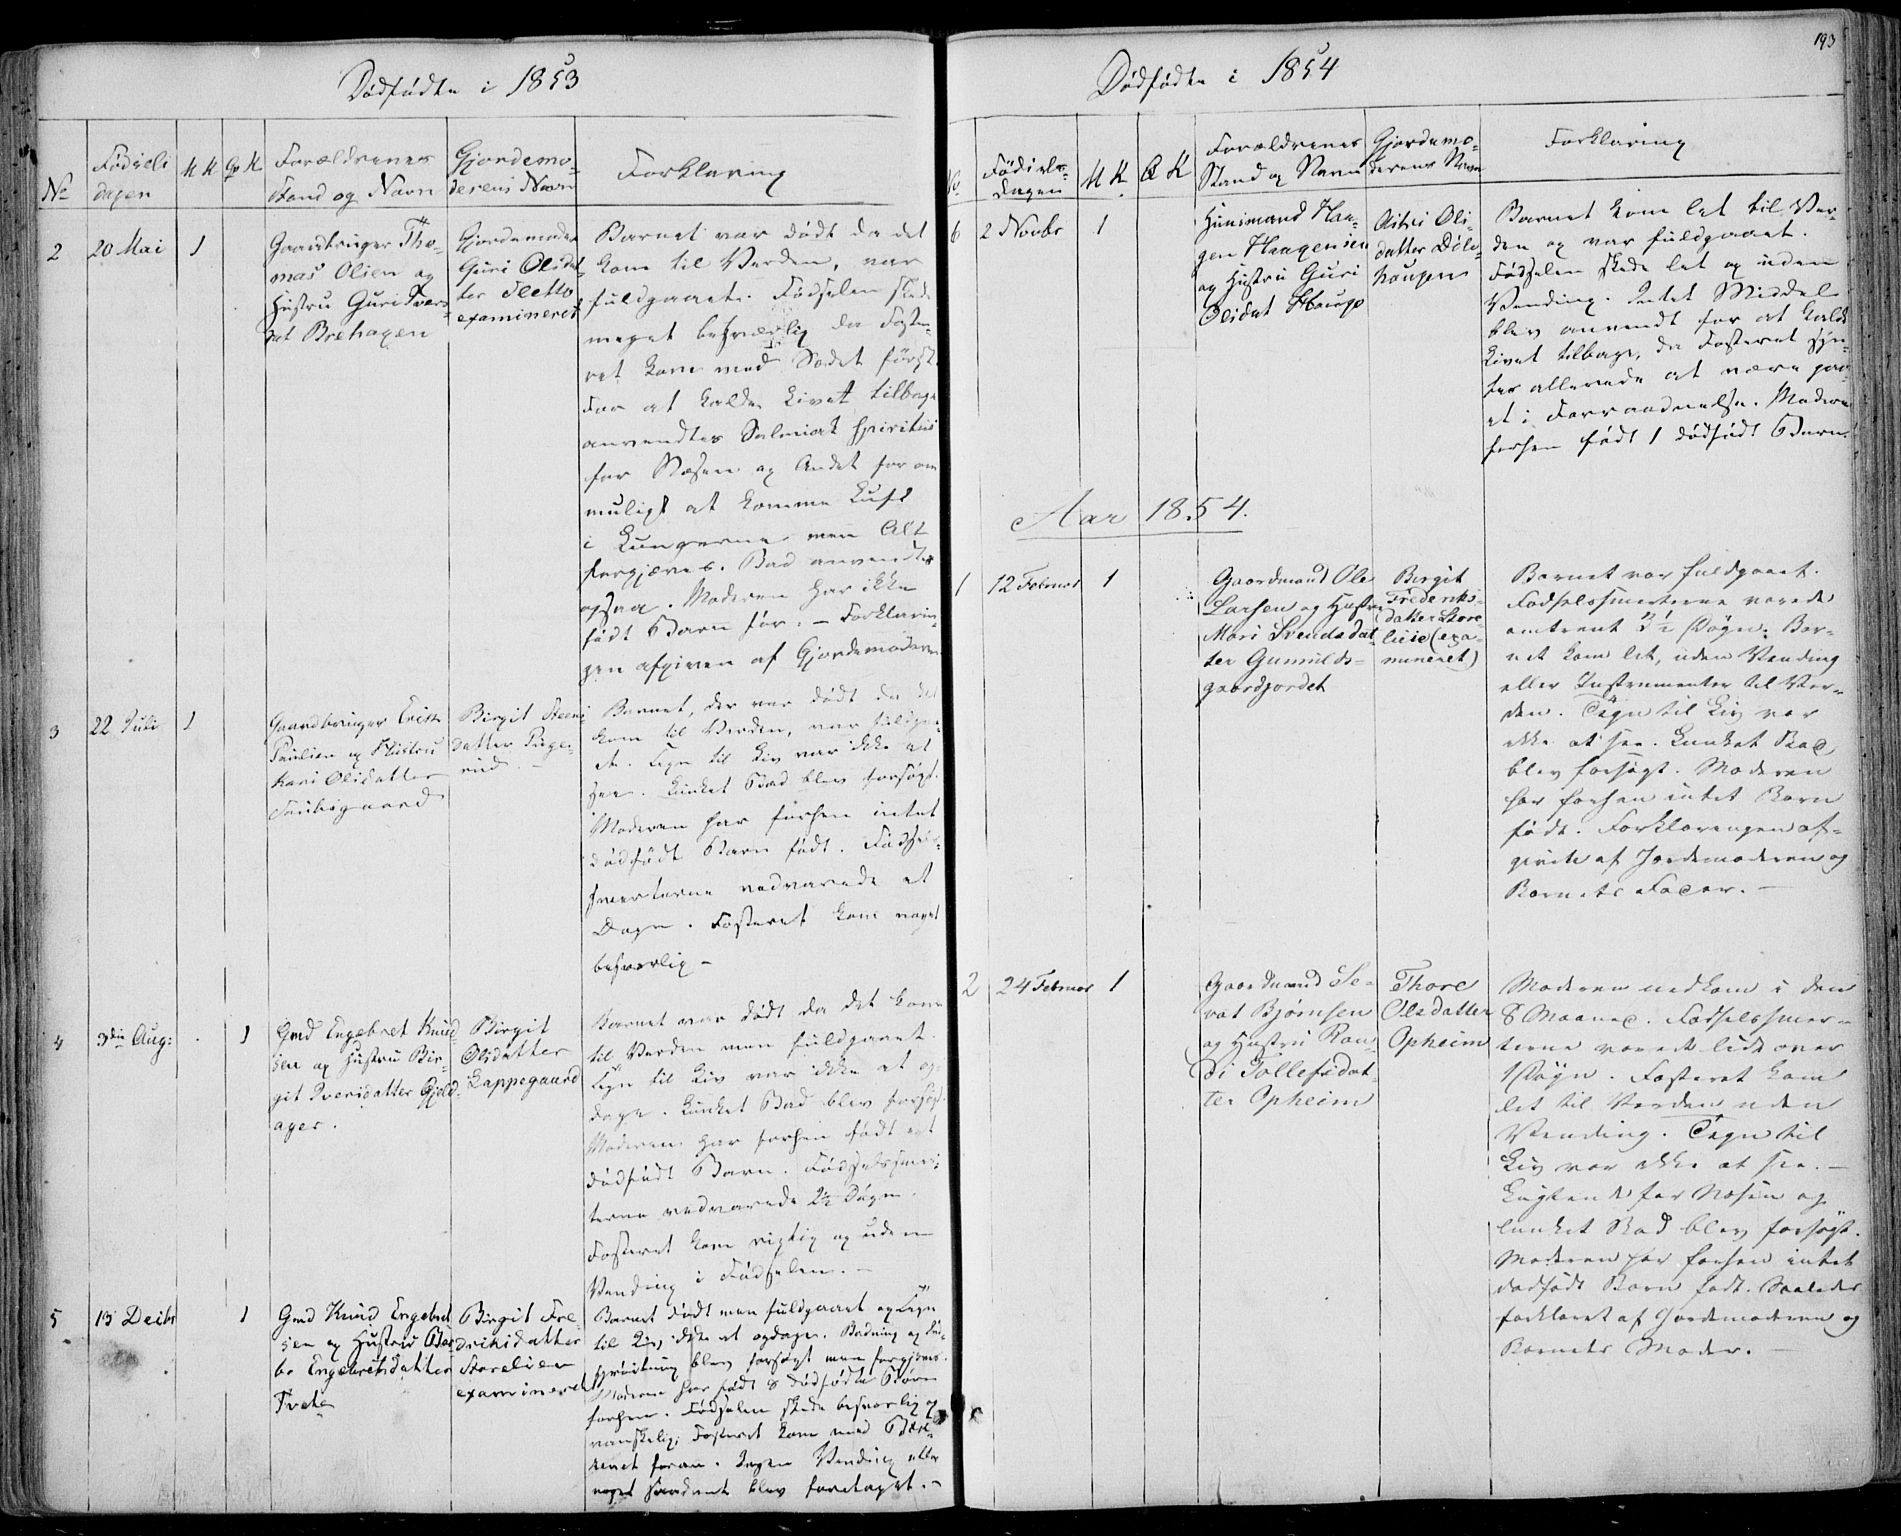 Dødfødte i 1853
No
Fødsels
dagen
M K
Qv K
Forældrenes
Stand og Navn
Gjordemo-
derens Navn
Forklaring
2
20 Mai
1
Gaardbruger Tho-
mas Olsen og
Hustru Guri Ivers
dat Brehagen
Gjordemoder
Guri Olsdat-
ter Sletto
examineret
Barnet var dødt da det
kom til Verden, var
fuldgaaet. Fødselen skede
meget besværlig da Foste-
ret kom med Sædet først.
For at kalde Livet tilbage
anvendtes Salmiak spiritus
for Næsen og Andet for om
muligt at komme Luft
i Lungerne men Alt
forgjæves. Bad anvendtes
ogsaa. Moderen har ikke
født Barn før. – Forklarin-
gen afgiven af Gjordemoderen
3
22 Juli
1
Gaardbruger Erik
Paulsen og Hustru
Kari Olsdatter
Birgit Steens-
datter Ruge-
rud. –
Barnet, der var dødt da det
kom til Verden, var fuldgaa-
et. Tegn til Liv var ikke at
see. Lunket Bad blev forsøgt.
Moderen har forhen intet
dødfødt Barn født. Fødsels-
smerterne vedvarede et
Døgn. Fosteret kom noget
besværlig –
4
3die Aug:
1
Gmd Engebret Knud
sen og Hustru Bir-
git Iversdatter Gjeld-
ager.
Birgit
Olsdatter
Kappegaard
Barnet var dødt da det kom
til Verden men fuldgaaet.
Tegn til Liv var ikke at op-
dage. Lunket Bad blev forsøgt.
Moderen har forhen født et
dødfødt Barn. Fødselssmer-
terne vedvarede 2½ Døgn.
Fosteret kom rigtig og uden
Vending i Fødselen. –
5
15 Decbr
1
Gmd Knud Engebret
sen og Hustru Bar-
bo Engebretsdatter
Tveto
Birgit Fre-
driksdatter
Storelien
examineret
Barnet dødt men fuldgaaet og Tegn
til Liv ikke at opdage. Badning og Ind-
sprøitning blev forsøgt men forgjæves.
Moderen har født 8 dødfødte Børn
forhen. Fødselen skede besværlig og
vanskelig; Fosteret kom med Bæk-
kenet foran. Ingen Vending eller
noget saadant blev foretaget. –
193
Dødfødte i 1854
No.
Fødsels-
dagen
M K
Q K
Forældrenes
Stand og Navn
Gjordemo-
derens Navn
Forklaring
6
2 Novbr
1
Huusmand Haa-
gen Haagensen
og Hustru Guri
Olsdat Hauge
Astri Ols-
datter Døle-
haugen
Barnet kom let til Ver-
den og var fuldgaaet.
Fødselen skede let og uden
Vending. Intet Middel
blev anvendt for at kalde
Livet tilbage, da Fosteret syn-
tes allerede at være gaa-
et i Forraadnelse. Moderen
forhen født 1 dødfødt Barn.
Aar 1854.
1
12 Februar
1
Gaardmand Ole
Larsen og Hustru
Mari Svendsdat-
ter Gunnulds-
gaardjordet
Birgit
Frederiks-
datter Store-
lien (exa-
mineret)
Barnet var fuldgaaet.
Fødselssmerterne varede
omtrent 3½ Døgn. Bar-
net kom let, uden Vending
eller Instrumenter til Ver-
den. Tegn til Liv var
ikke at see. Lunket Bad
blev forsøgt. Moderen
har forhen intet Barn
født. Forklaringen af-
given af Jordemoderen og
Barnets Fader. –
2
24 Februar
1
Gaardmand Se-
vat Bjørnsen
og Hustru Ran-
di Tollefsdat-
ter Opheim
Thore
Olsdatter
Opheim
Moderen nedkom i den
8 Maaned. Fødselssmer-
terne varede lidt over
1 Døgn. Fosteret kom
let til Verden uden
Vending. Tegn til
Liv var ikke at see. –
Lugtende for Næsen og
lunket Bad blev forsøgt.
Moderen har forhen intet
dødfødt Barn født. Saaledes
forklaret af Jordemoderen og
Barnets Moder. –